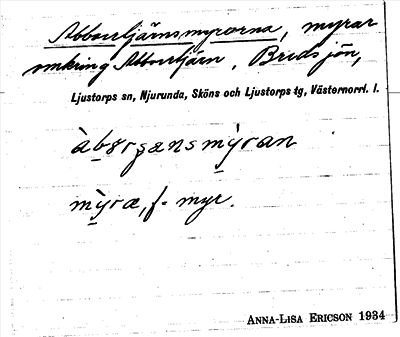 Abborrtjärnsmyrarna, myrar
omkring Abborrtjärn, Bredsjön,
Ljustorps sn, Njurunda, Sköns och Ljustorps tg, Västernorrl. l.
myra, f. myr.
ANNA-LISA ERICSON 1934